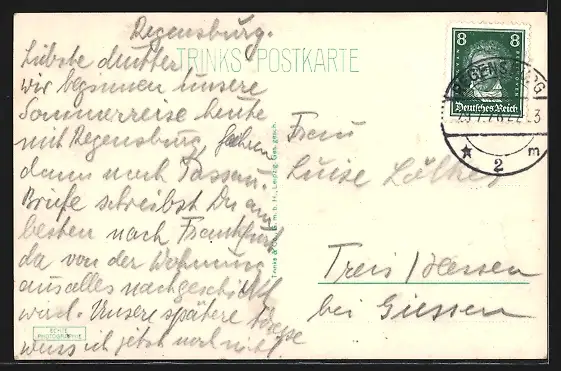 Regensburg.
TRINKS POSTKARTE
Liebste Mutter
wir beginnen unsere
Sommerreise heute
mit Regensburg, fahren
dann nach Passau.
Briefe schreibst Du am
besten nach Frankfurt
da von der Wohnung
aus alles nachgeschickt
wird. Unsere spätere Adresse
weiss ich jetzt noch nicht
ECHTE
PHOTOGRAPHIE
Trinks & Co., G. m. b. H., Leipzig. Ges. gesch.
8 8
Deutsches Reich
REGENSBURG
2 m
Frau
Luise
Treis / Hessen
bei Giessen